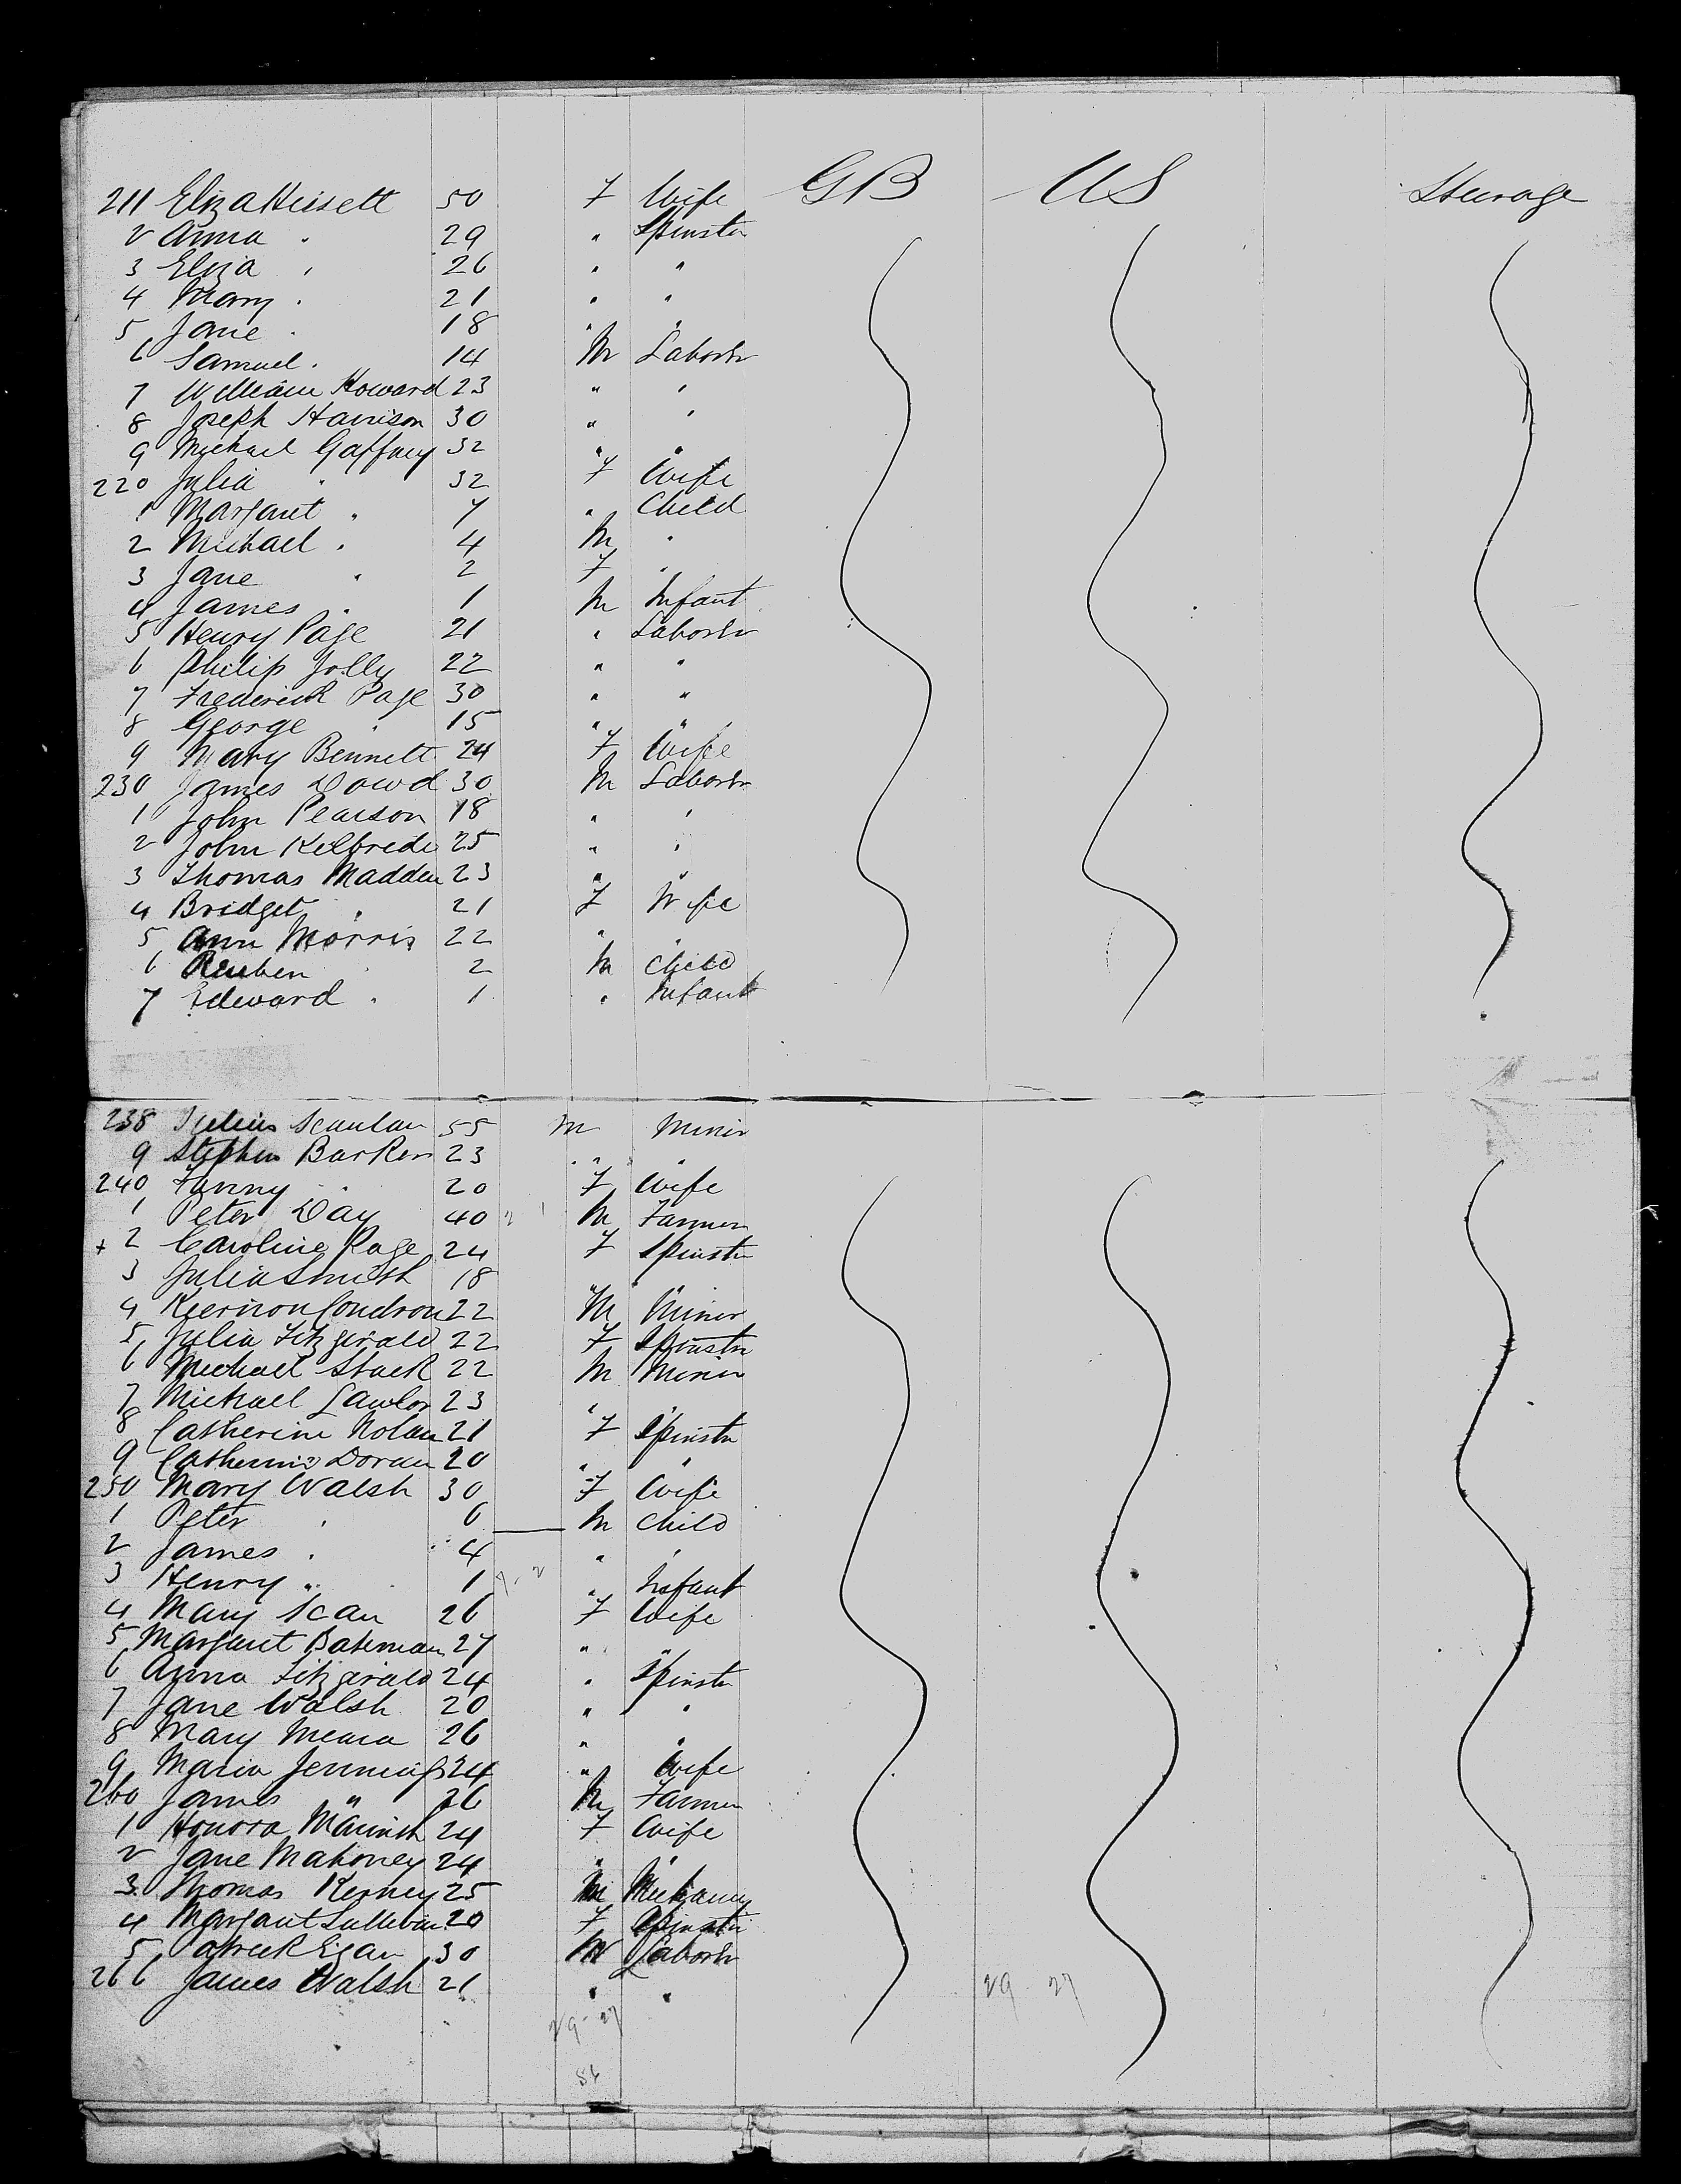 211 Eliza Hissett 50 F Wife GB US Steerage
2 Anna " 29 " Spinster
3 Eliza " 26 " "
4 Mary " 21 " "
5 Jane " 18 " "
6 Samuel " 14 M Laborer
7 William Howard 23 " "
8 Joseph Harrison 30 " "
9 Michael Gaffney 32 " "
220 Julia " 32 F Wife
1 Margaret " 7 " Child
2 Michael " 4 M "
3 Jane " 2 F "
4 James " 1 M Infant
5 Henry Page 21 " Laborer
6 Philip Jolly 22 " "
7 Frederick Page 30 " "
8 George " 15 " "
9 Mary Bennett 24 F Wife
230 James Dowd 30 M Laborer
1 John Pearson 18 " "
2 John 25 " "
3 Thomas Madden 23 " "
4 Bridget " 21 F Wife
5 Ann Morris 22 " "
6 Reuben " 2 M Child
7 Edward " 1 " Infant
238 Scanlan 55 M Miner
9 Stephen Barker 23 " "
240 Fanny " 20 F Wife
1 Peter Day 40 M Farmer
+ 2 Caroline Page 24 F Spinster
3 Julia Smith 18 " "
4 Condron 22 M Miner
5 Julia Fitzgerald 22 F Spinster
6 Michael Stack 22 M Miner
7 Michael Lawlor 23 " "
8 Catherine Nolan 21 F Spinster
9 Catherine Doran 20 " "
250 Mary Walsh 30 F Wife
1 Peter " 6 M Child
2 James " 4 " "
3 Henry " 1 " Infant
4 Mary Scan 26 F Wife
5 Margaret Bateman 27 " "
6 Anna Fitzgerald 24 " Spinster
7 Jane Walsh 20 " "
8 Mary Meara 26 " "
9 Maria Jennings 24 " Wife
260 James " 26 M Farmer
1 Honora 24 F Wife
2 Jane Mahoney 24 " "
3 Thomas Kerney 25 M
4 Margaret Sullivan 20 F Spinster
5 Patrick Egan 30 M Laborer
266 James Walsh 21 " "
29-27 29-27
56